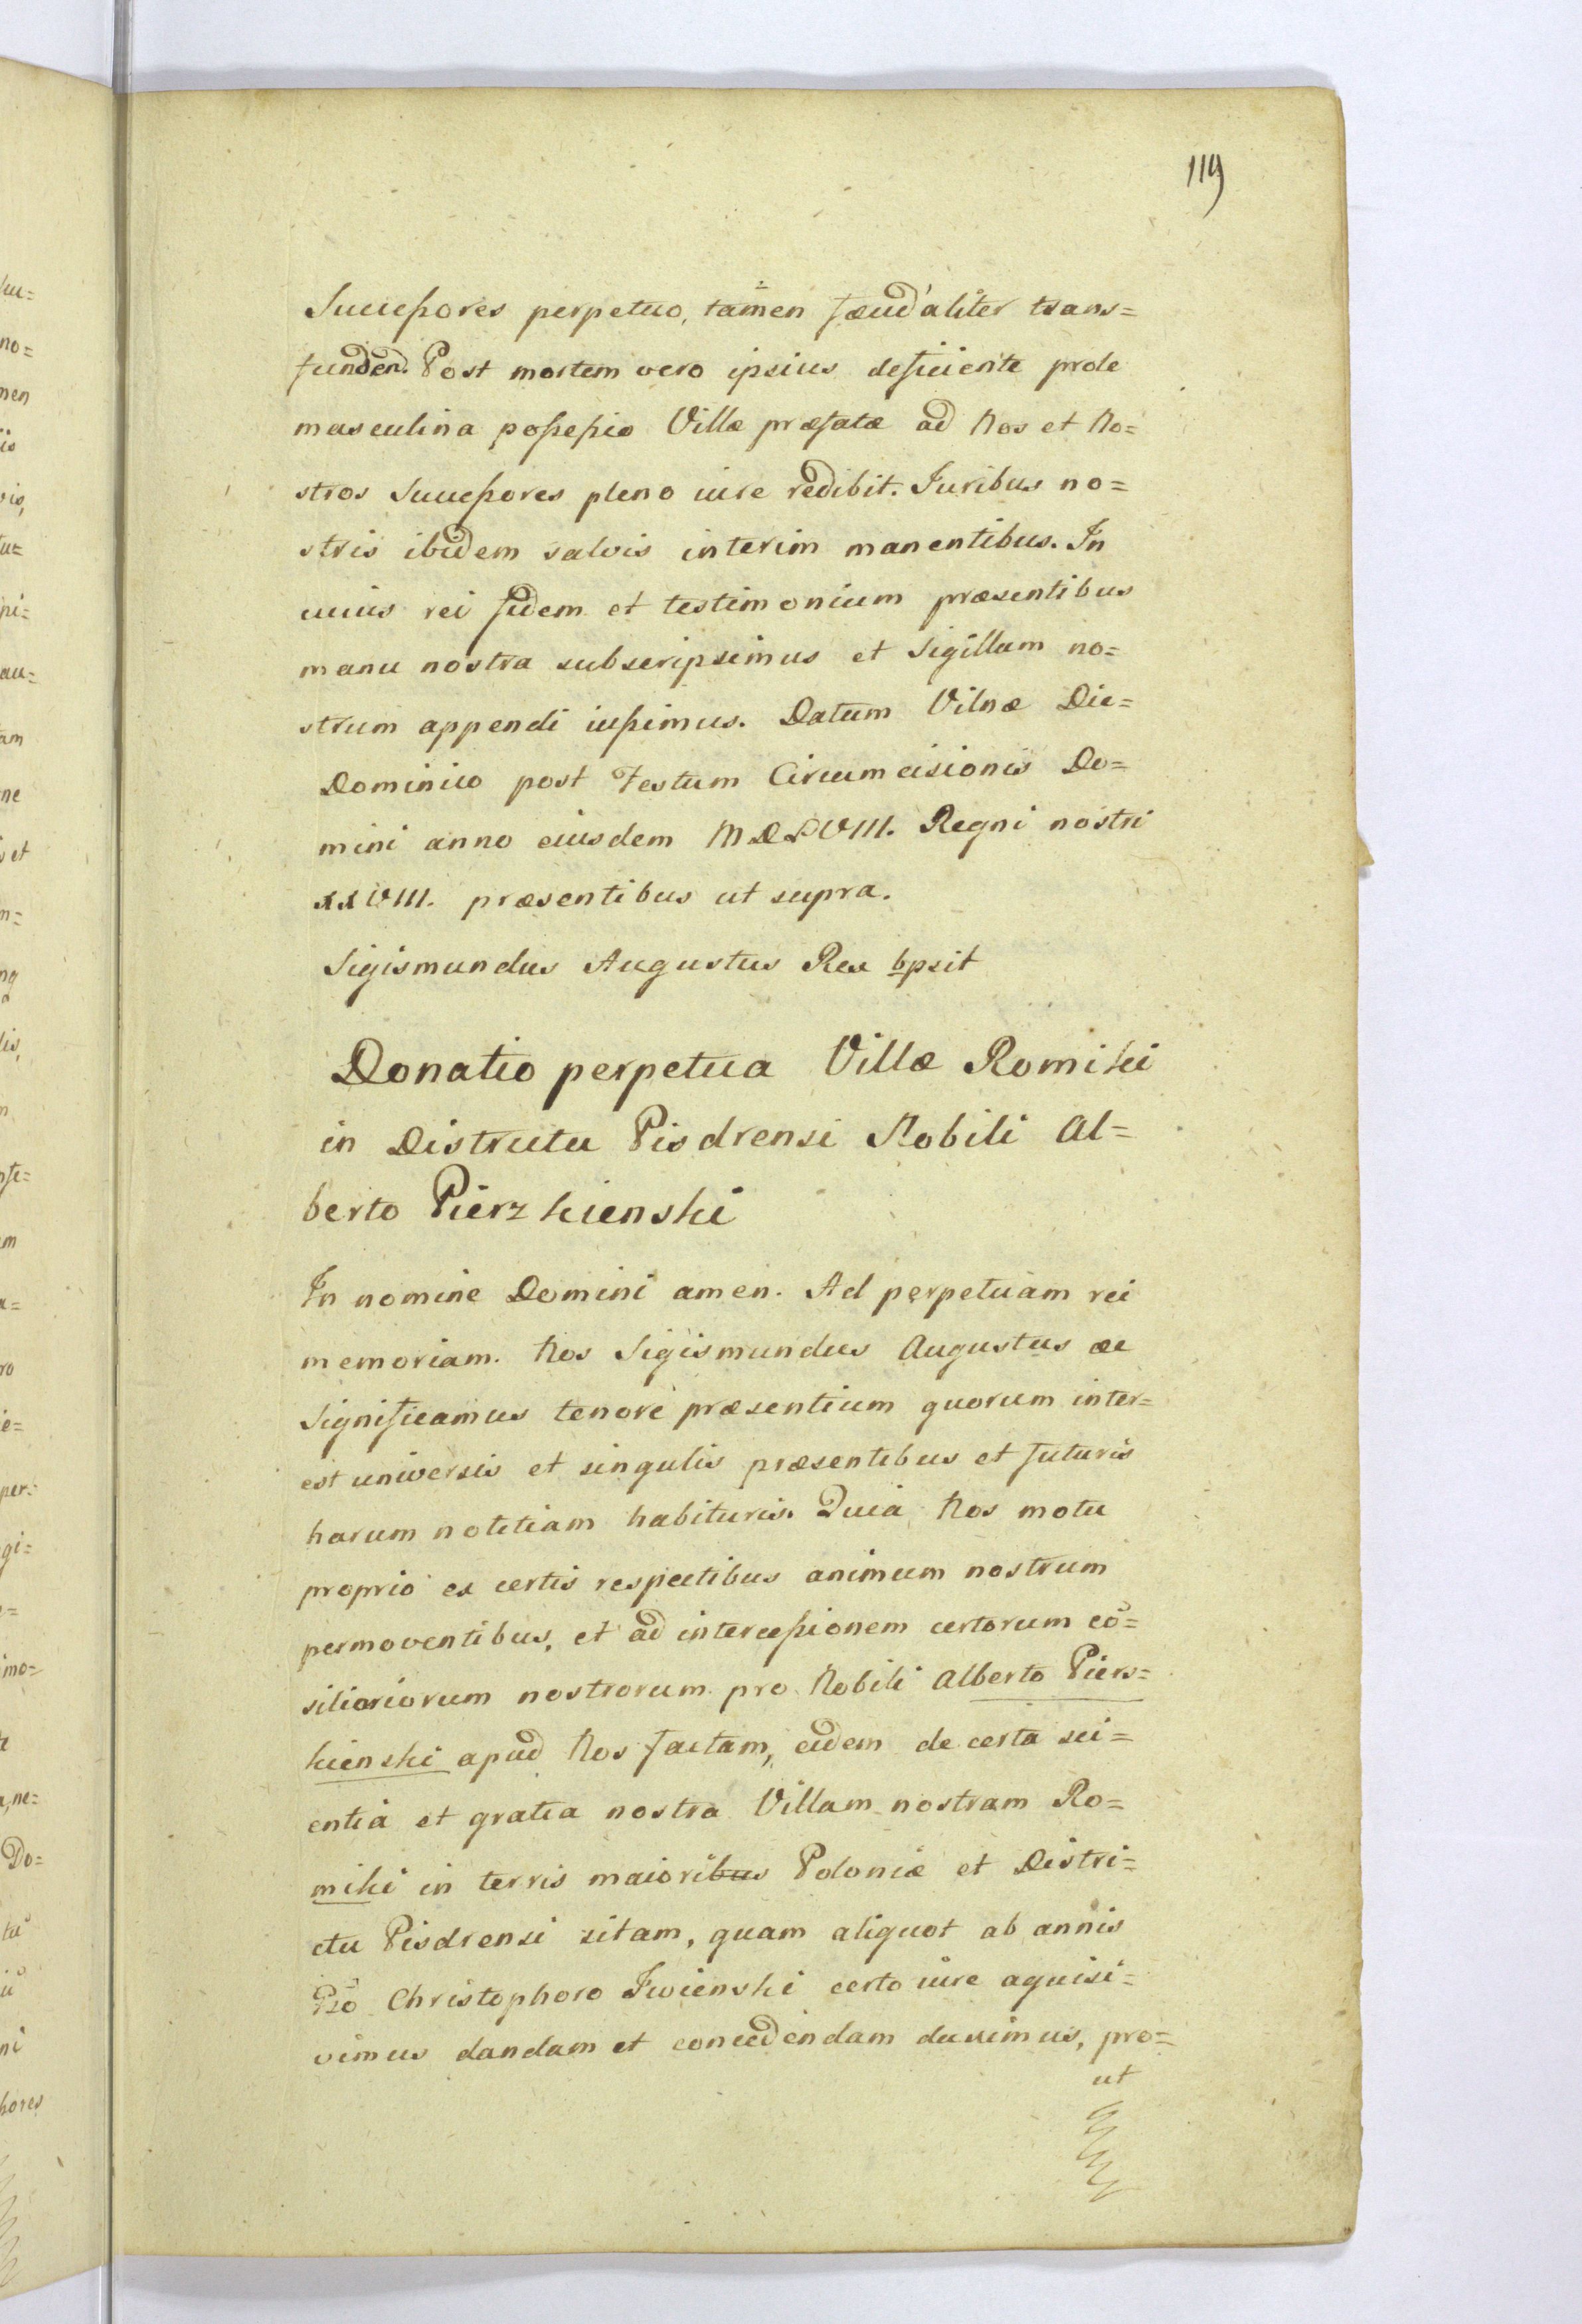 119
Successores perpetuo, tamen fæudaliter trans=
funden. Post mortem vero ipsius deficiente prole
masculina possessio Villæ præfatæ ad Nos et No=
stros Successores pleno iure redibit. Juribus no=
stris ibidem salvis interim manentibus. In
cuius rei fidem et testimonium præsentibus
manu nostra subscripsimus et Sigillum no=
strum appendi iussimus. Datum Vilnæ Die=
Dominico post Festum Circumcisionis Do=
mini anno eiusdem MDLVIII. Regni nostri
XXVIII. præsentibus ut supra.
Sigismundus Augustus Rex bpsit
Donatio perpetua Villæ Romiki
in Districtu Pisdrensi Nobili Al=
berto Pierzkienski
In nomine Domini amen. Ad perpetuam rei
memoriam. Nos Sigismundus Augustus æc
Significamus tenore præsentium quorum inter=
est universis et singulis præsentibus et futuris
harum notitiam habituris. Quia Nos motu
proprio ex certis respectibus animum nostrum
permoventibus, et ad intercessionem certorum co=
siliariorum nostrorum pro Nobili Alberto Piers=
kienski apud Nos factam, eidem de certa sci=
entia et gratia nostra Villam nostram Ro=
miki in terris maioribus Poloniæ et Distri=
ctu Pisdrensi sitam, quam aliquot ab annis
Gso Christophoro Iwienski certo iure aquisi=
vimus dandam et concedendam duximus, pro=
ut